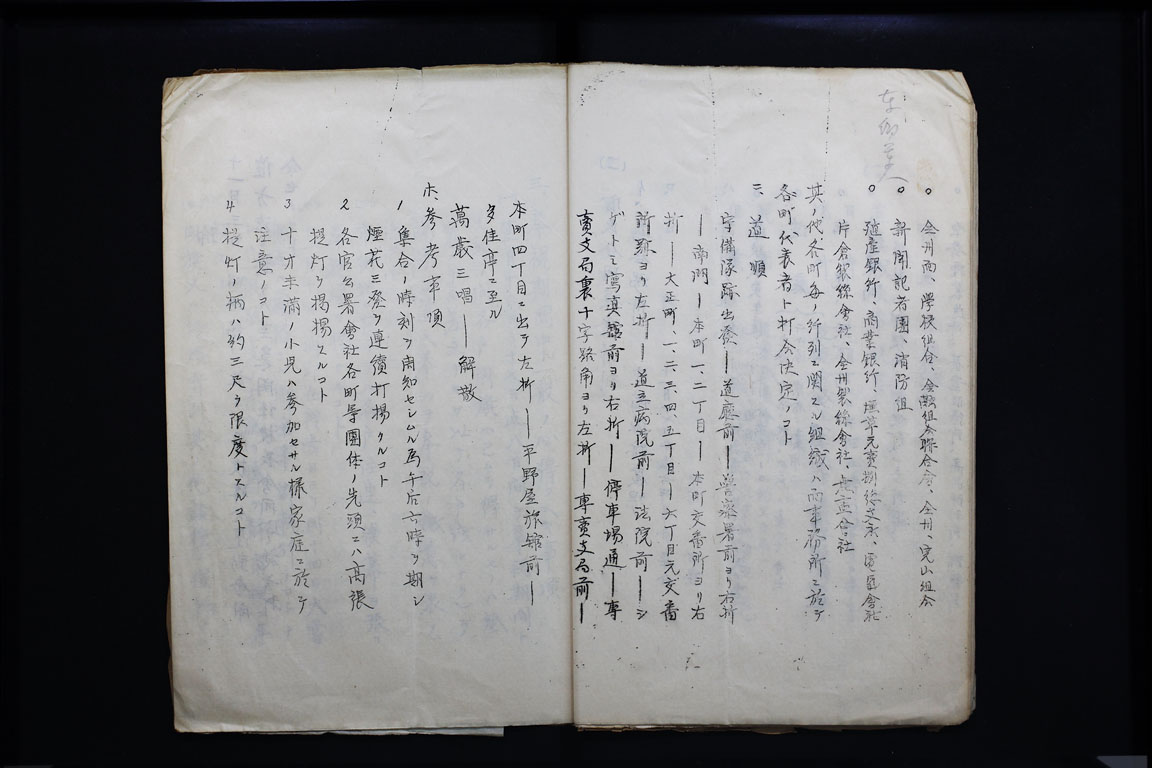 ○ 全州面、學校組合、金融組合聯合会、全州、完山組合
○ 新聞記者團、消防組
○ 殖産銀行、商業銀行、煙草元賣捌、電氣會社
片倉製絲會社、全州製絲會社、無盡会社
其ノ他各町每ノ行列ニ関スル組織ハ面事務所ニ於テ
各町代表者ト打合決定ノコト
二、道順
守備隊跡出發―道廳前―警察署前ヨリ右折
―南門―本町一、二丁目―本町交番所ヨリ右
折―大正町、一、二、三、四、五丁目―六丁目元交番
所跡ヨリ左折―道立病院前―法院前―シ
ゲトミ寫眞舘前ヨリ右折―停車場通―專
賣支局裏十字路角ヨリ左折―專賣支局前―
本町四丁目ニ出テ左折―平野屋旅舘前―
多佳亭ニ至ル
萬歳三唱―解散
ホ、参考事項
1 集合ノ時刻ヲ周知セシムル為午后六時ヲ期シ
煙花三發ヲ連續打揚クルコト
2 各官公署會社各町等團体ノ先頭ニハ高張
提灯ヲ揭揚スルコト
3 十才未滿ノ小児ハ参加セサル樣家庭ニ於テ
注意ノコト
4 提灯ノ柄ハ約三尺ヲ限度トスルコト